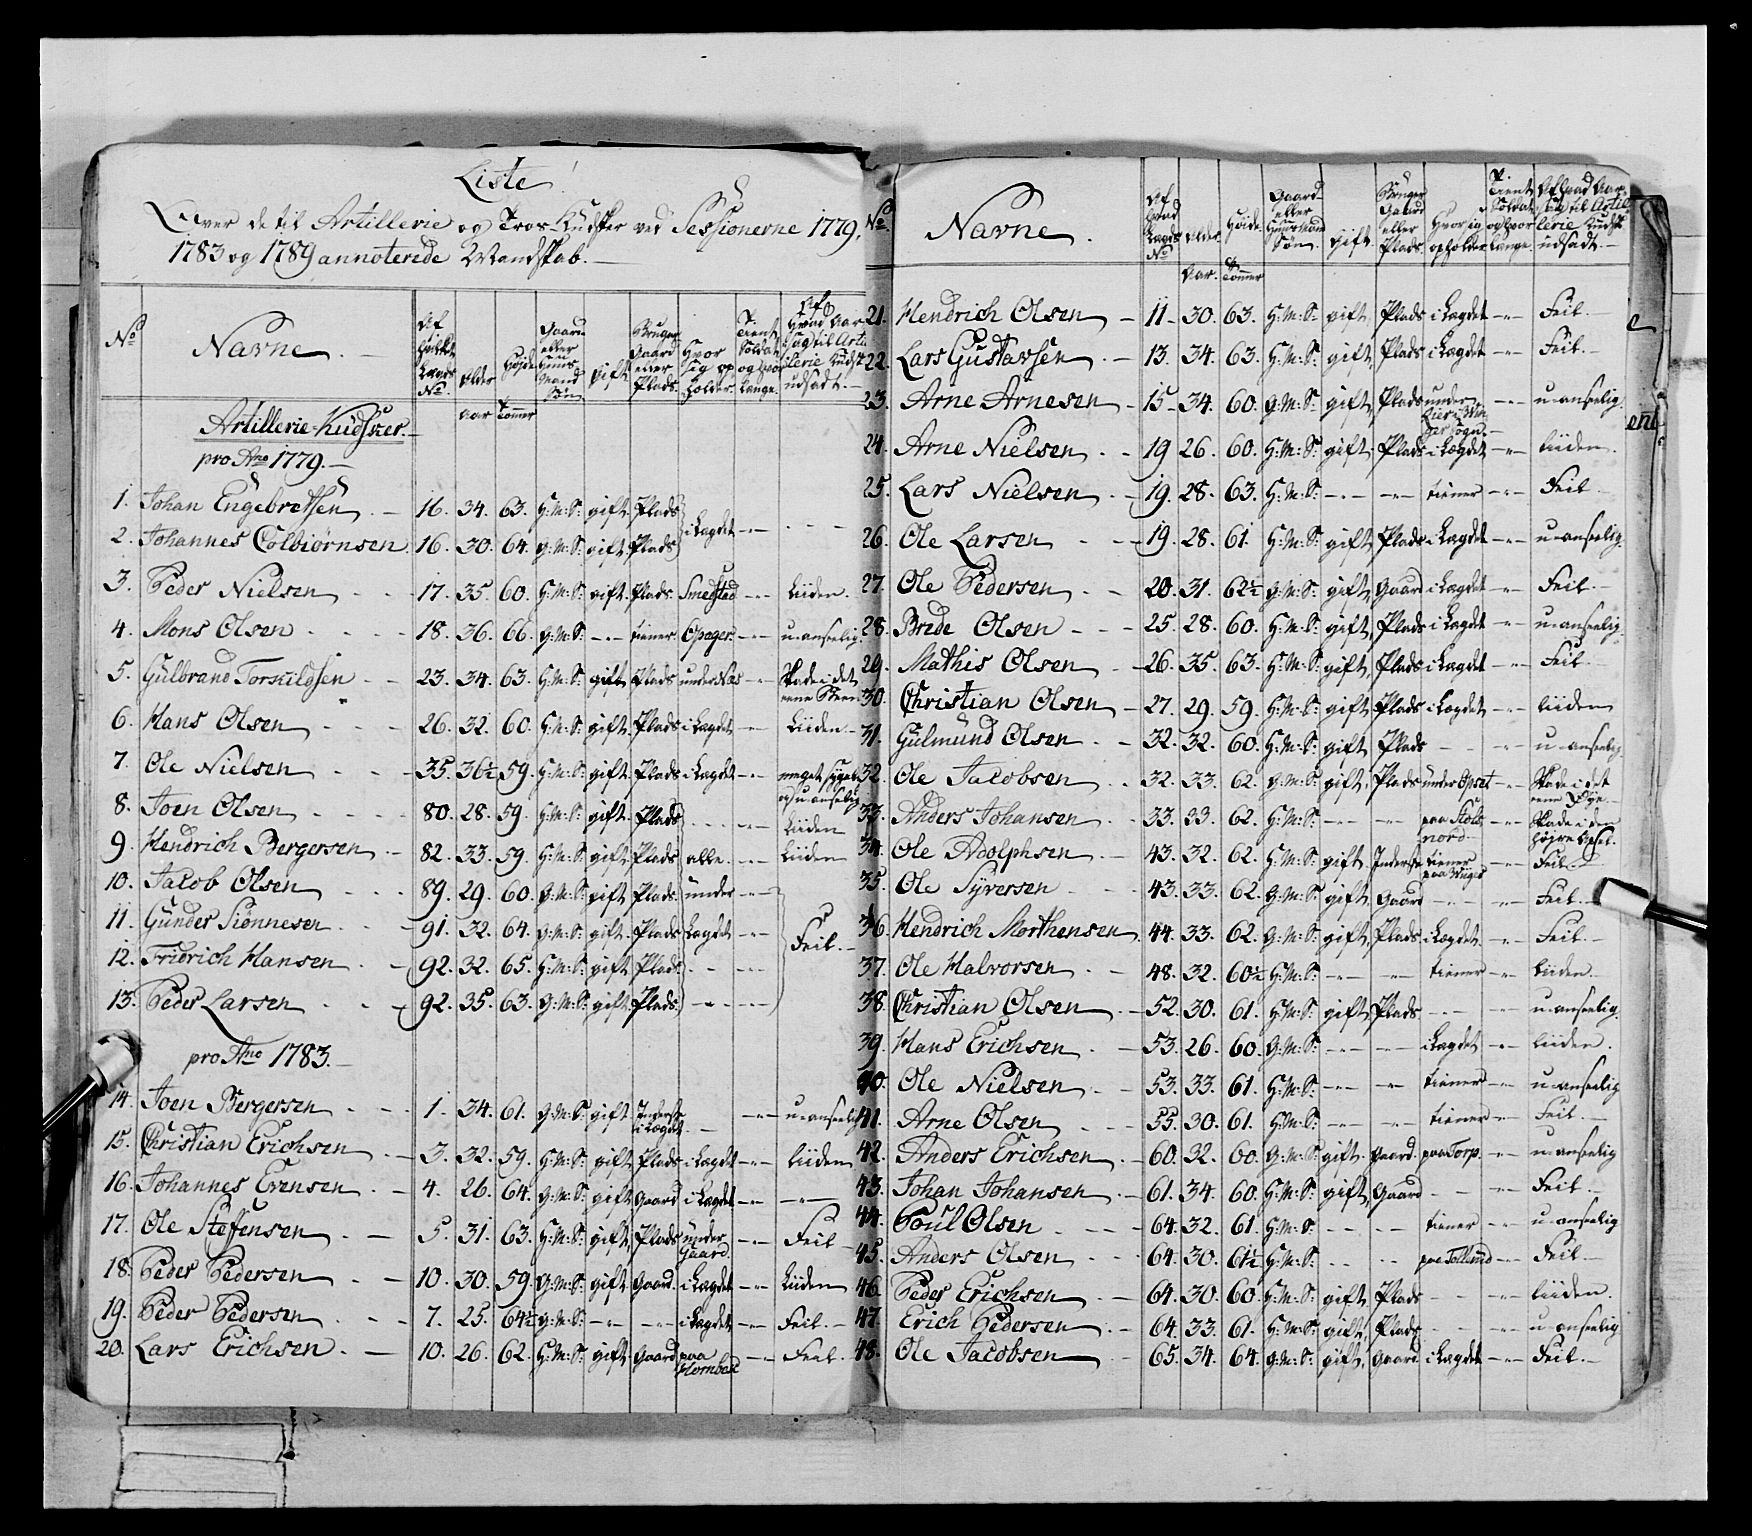 Liste
Over de til Artillerie og Tros Kudsker ved Sessionerne 1779,
1783 og 1789 annoterede Mandskab.
No Navne. Af hvilket Lægds No Alder Høide Gaard eller Huus Mand Søn gift Bruger Gaard eller Plads. Hvor sig opholder. Tient Soldat og hvor Længe. Af hvad Aarsag til Artillerie Kudsk udsadt.
Aar Tommer
Artillerie-Kudsker.
pro Ano 1779.
1. Johan Engebretsen 16. 34. 63. H:M:S: gift Plads
2. Johannes Colbiørnsen 16. 30. 64. G:M:S: gift Plads i Lægdet
3. Peder Nielsen 17. 35. 60. H:M:S: gift Plads Smedstad Liiden
4. Mons Olsen 18. 36. 66. G:M:S: tiener Opager u-anseelig
5. Gulbrand Torkildsen 23. 34. 63. H:M:S: gift Plads under Næs Skade i det eene Been
6. Hans Olsen 26. 32. 60. H:M:S: gift Plads i Lægdet Liiden
7. Ole Nielsen 35. 36½ 59. H:M:S: gift Plads i Lægdet meget sygel: og u-anseelig
8. Joen Olsen 80. 28. 59. H:M:S: gift Plads Liiden
9. Hendrich Bergersen 82. 33. 59. H:M:S: gift Plads alle Liiden
10. Jacob Olsen 89. 29. 60. G:M:S: gift Plads under
11. Gunder Siønnesen 91. 32. 64. G:M:S: gift Plads Lægdet Feil
12. Fridrich Hansen 92. 32. 65. H:M:S: gift Plads
13. Peder Larsen 92. 35. 63. G:M:S: gift Plads
pro Ano 1783.
14. Joen Bergersen 1. 34. 61. G:M:S gift Inderst i Lægdet u-anseelig
15. Christian Erichsen 3. 32. 59. H:M:S: gift Plads i Lægdet Liiden
16. Johannes Evensen 4. 26. 64. G:M:S: gift Gaard i Lægdet
17. Ole Steffensen 5. 31. 63. H:M:S: gift Plads under Gaard Feil
18. Peder Pedersen 10. 30. 59. G:M:S: gift Gaard i Lægdet Liiden
19. Peder Pedersen 7. 25. 64½ G:M:S: i Lægdet Feil
20. Lars Erichsen 10. 26. 62. H:M:S: gift Gaard paa Hornbæk Feil
No Navne. Af hvad Lægds No Alder Høide Gaard eller Huusmand Søn. gift Bruger Gaard eller Plads. Hvor sig opholder Tient Soldat og hvor Længe. Af hvad Aarsag til Artillerie Kudsk udsadt.
Aar. Tommer
21. Hendrich Olsen 11. 30. 63. H:M:S: gift Plads i Lægdet Feil
22. Lars Gustavsen 13. 34. 63. H:M:S: gift Plads i Lægdet Feil
23. Arne Arnesen 15. 34. 60. G:M:S: gift Plads under u-anseelig
24. Arne Nielsen 19 26. 60. H:M:S: gift Plads i Lægdet Liiden
25. Lars Nielsen 19. 28. 63. H:M:S: tiener Feil
26. Ole Larsen 19. 28. 61. H:M:S: gift Plads i Lægdet u-anseelig
27. Ole Pedersen 20. 31. 62½ G:M:S: gift Gaard i Lægdet Feil
28. Brede Olsen 25. 28. 60. H:M:S: gift Plads i Lægdet u-anseelig
29. Mathis Olsen 26. 35. 63. H:M:S: gift Plads i Lægdet Feil
30. Christian Olsen 27. 29. 59. H:M:S: gift Plads i Lægdet Liiden
31. Gulmund Olsen 32. 32. 60. H:M:S: gift Plads u-anseelig
32. Ole Jacobsen 32. 33. 62. G:M:S: gift Plads under Opset Skade i det eene Øye
33. Anders Johansen 33. 33. 62. H:M:S: paa Skols nord Skade i den høyre Axel
34. Ole Adolphsen 43. 32. 62. H:M:S: gift Inderste tiener Feil
35. Ole Syversen 43. 33. 62. G:M:S: gift Gaard Feil
36. Hendrich Morthensen 44. 33. 62. G:M:S: gift Plads i Lægdet Feil
37. Ole Halvorsen 48. 32. 60½ H:M:S: tiener Liiden
38. Christian Olsen 52. 30. 61. H:M:S: gift Plads u-anseelig
39. Hans Erichsen 53. 26. 60. G:M:S: i Lægdet Liiden
40. Ole Nielsen 53. 33. 61. H:M:S: tiener u-anseelig
41. Arne Olsen 55. 30. 61. H:M:S: tiener Feil
42. Anders Erichsen 60. 32. 60. G:M:S: gift Gaard paa Torp u-anseelig
43. Johan Johansen 61. 34. 60. H:M:S: gift Gaard Feil
44. Poul Olsen 64. 32. 61. H:M:S: tiener u-anseelig
45. Anders Olsen 64. 30. 61½ H:M:S: paa Tollerud Feil
46. Peder Erichsen 64. 30. 60. H:M:S: gift Plads Liiden
47. Erich Pedersen 64. 33. 61. H:M:S: gift Plads u-anseelig
48. Ole Jacobsen 65. 34. 64. G:M:S: gift Gaard i Lægdet Feil